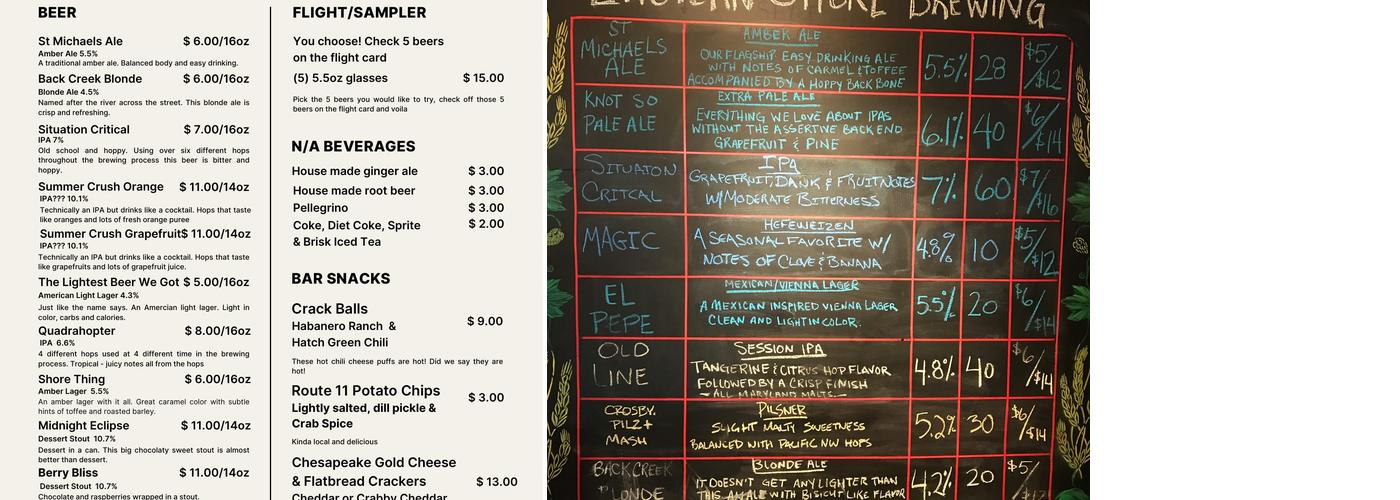 BEER
St Michaels Ale $ 6.00/16oz
Amber Ale 5.5%
A traditional amber ale. Balanced body and easy drinking.
Back Creek Blonde $ 6.00/16oz
Blonde Ale 4.5%
Named after the river across the street. This blonde ale is
crisp and refreshing.
Situation Critical $ 7.00/16oz
IPA 7%
Old school and hoppy. Using over six different hops
throughout the brewing process this beer is bitter and
hoppy.
Summer Crush Orange $ 11.00/14oz
IPA??? 10.1%
Technically an IPA but drinks like a cocktail. Hops that taste
like oranges and lots of fresh orange puree
Summer Crush Grapefruit$ 11.00/14oz
IPA??? 10.1%
Technically an IPA but drinks like a cocktail. Hops that taste
like grapefruits and lots of grapefruit juice.
The Lightest Beer We Got $ 5.00/16oz
American Light Lager 4.3%
Just like the name says. An Amercian light lager. Light in
color, carbs and calories.
Quadrahopter $ 8.00/16oz
IPA 6.6%
4 different hops used at 4 different time in the brewing
process. Tropical - juicy notes all from the hops
Shore Thing $ 6.00/16oz
Amber Lager 5.5%
An amber lager with it all. Great caramel color with subtle
hints of toffee and roasted barley.
Midnight Eclipse $ 11.00/14oz
Dessert Stout 10.7%
Dessert in a can. This big chocolaty sweet stout is almost
better than dessert.
Berry Bliss $ 11.00/14oz
Dessert Stout 10.7%
Chocolate and raspberries wrapped in a stout.
FLIGHT/SAMPLER
You choose! Check 5 beers
on the flight card
(5) 5.5oz glasses $ 15.00
Pick the 5 beers you would like to try, check off those 5
beers on the flight card and voila
N/A BEVERAGES
House made ginger ale $ 3.00
House made root beer $ 3.00
Pellegrino $ 3.00
Coke, Diet Coke, Sprite $ 2.00
& Brisk Iced Tea
BAR SNACKS
Crack Balls
Habanero Ranch & $ 9.00
Hatch Green Chili
These hot chili cheese puffs are hot! Did we say they are
hot!
Route 11 Potato Chips $ 3.00
Lightly salted, dill pickle &
Crab Spice
Kinda local and delicious
Chesapeake Gold Cheese
& Flatbread Crackers $ 13.00
Cheddar or Crabby Cheddar
EASTERN SHORE BREWING
ST
MICHAELS
ALE
AMBER ALE
OUR FLAGSHIP EASY DRINKING ALE
WITH NOTES OF CARMEL & TOFFEE
ACCOMPANIED BY A HOPPY BACK BONE
5.5% 28 $5/$12
KNOT SO
PALE ALE
EXTRA PALE ALE
EVERYTHING WE LOVE ABOUT IPAS
WITHOUT THE ASSERTIVE BACK END
GRAPEFRUIT & PINE
6.1% 40 $6/$14
SITUAION
CRITCAL
IPA
GRAPEFRUIT, DANK & FRUIT NOTES
W/ MODERATE BITTERNESS
7% 60 $7/$16
MAGIC
HEFEWEIZEN
A SEASONAL FAVORITE W/
NOTES OF CLOVE & BANANA
4.8% 10 $5/$12
EL
PEPE
MEXICAN/VIENNA LAGER
A MEXICAN INSPIRED VIENNA LAGER
CLEAN AND LIGHT IN COLOR.
5.5% 20 $6/$14
OLD
LINE
SESSION IPA
TANGERINE & CITRUS HOP FLAVOR
FOLLOWED BY A CRISP FINISH
- ALL MARYLAND MALTS -
4.8% 40 $6/$14
CROSBY.
PILZ +
MASH
PILSNER
SLIGHT MALTY SWEETNESS
BALANCED WITH PACIFIC NW HOPS
5.2% 30 $6/$14
BACK CREEK
BLONDE
BLONDE ALE
IT DOESN'T GET ANY LIGHTER THAN
THIS AN ALE WITH BISICUT LIKE FLAVOR
4.2% 20 $5/